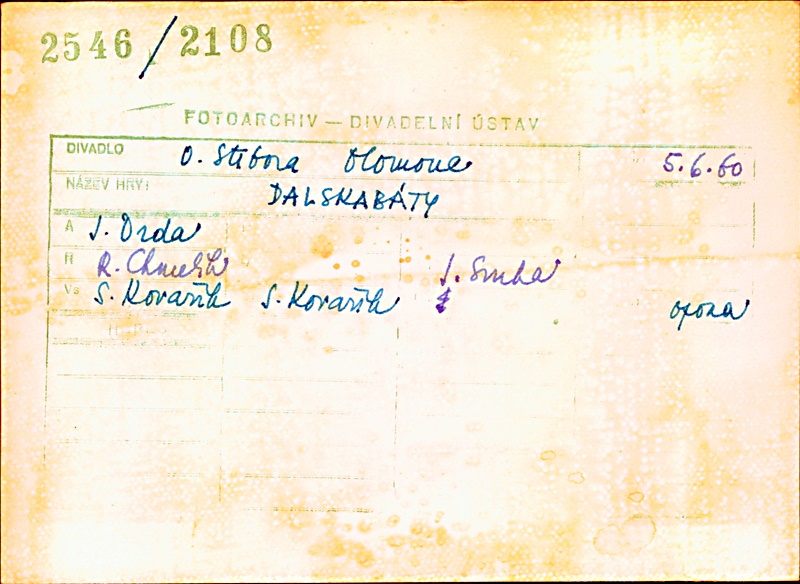 2546/2108
FOTOARCHIV — DIVADELNÍ ÚSTAV
DIVADLO O. Stibora Olomouc 5.6.60
NÁZEV HRY: DALSKABÁTY
A J. Drda
R R. Chmelík J. Smha
Vs S. Kovařík S. Kovařík opona